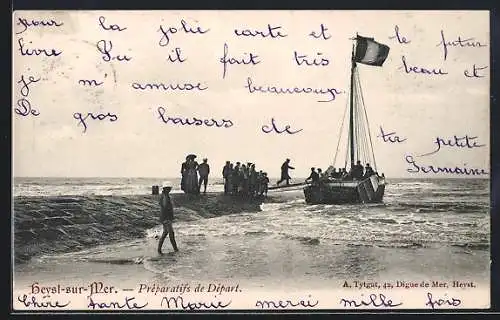 pour la jolie carte et le futur
livre il fait très beau et
je m'amuse beaucoup.
De gros baisers de ta petite
Germaine
Heyst-sur-Mer. — Préparatifs de Départ.
A. Tytgat, 42, Digue de Mer, Heyst.
Chère tante Marie merci mille fois